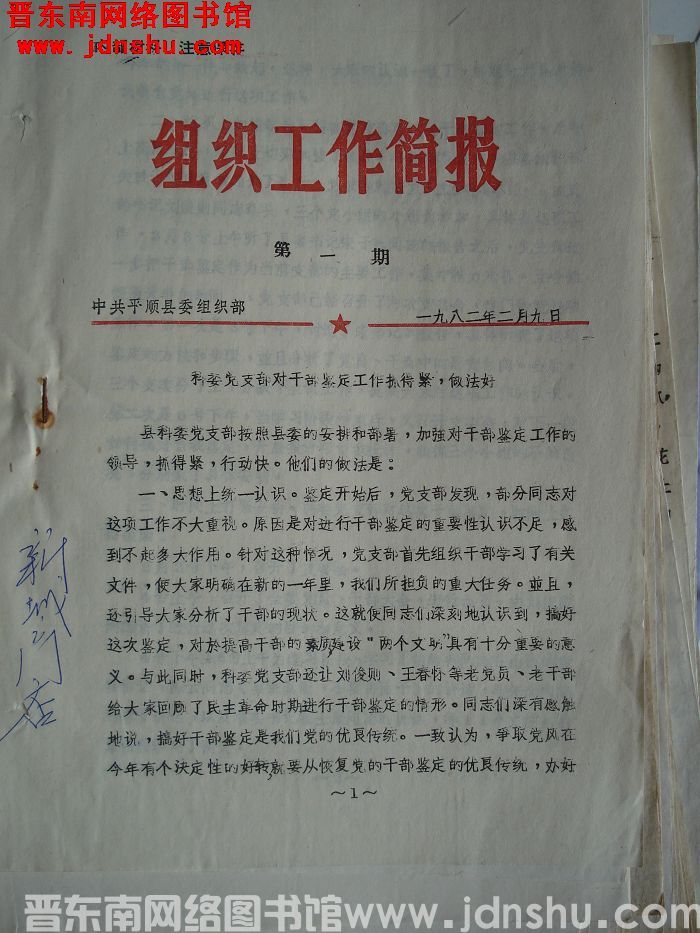 晋东南网络图书馆 www.jdnshu.com
内部材料 注意保存
组织工作简报
第一期
中共平顺县委组织部
一九八二年二月九日
科委党支部对干部鉴定工作抓得紧，做法好
县科委党支部按照县委的安排和部署，加强对干部鉴定工作的
领导，抓得紧，行动快。他们的做法是：
一、思想上统一认识。鉴定开始后，党支部发现，部分同志对
这项工作不大重视。原因是对进行干部鉴定的重要性认识不足，感
到不起多大作用。针对这种情况，党支部首先组织干部学习了有关
文件，使大家明确在新的一年里，我们所担负的重大任务。並且，
还引导大家分析了干部的现状。这就使同志们深刻地认识到，搞好
这次鉴定，对於提高干部的素质，建设“两个文明”具有十分重要的意
义。与此同时，科委党支部还让刘俊则、王春怀等老党员、老干部
给大家回顾了民主革命时期进行干部鉴定的情形。同志们深有感触
地说，搞好干部鉴定是我们党的优良传统。一致认为，争取党风在
今年有个决定性的好转，就要从恢复党的干部鉴定的优良传统，办好
～1～
晋东南网络图书馆 www.jdnshu.com